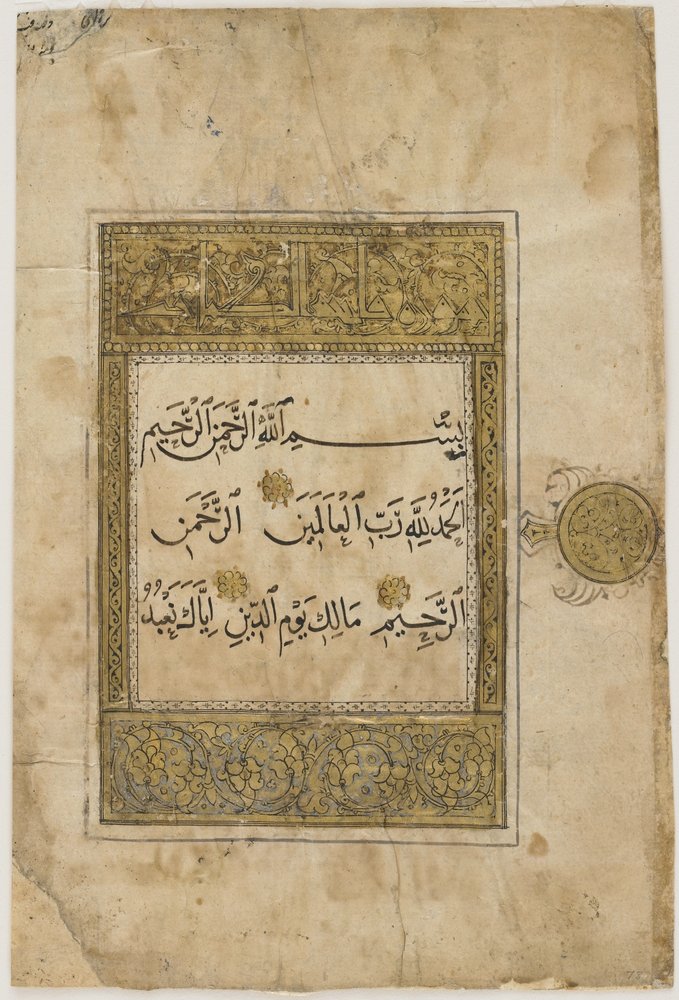 فاتحة الكتاب
بِسْمِ ٱللَّهِ ٱلرَّحْمَنِ ٱلرَّحِيمِ
ٱلْحَمْدُ لِلَّهِ رَبِّ ٱلْعَالَمِينَ ٱلرَّحْمَنِ
ٱلرَّحِيمِ مَالِكِ يَوْمِ ٱلدِّينِ إِيَّاكَ نَعْبُدُ